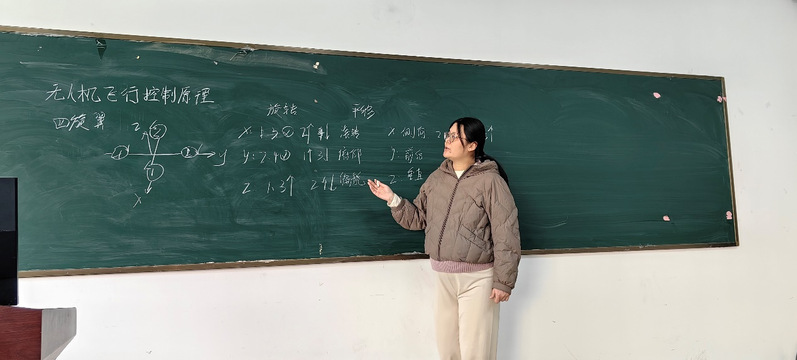 无人机飞行控制原理
四旋翼
旋转 平移
Z
y
X
X 1、3 2↑4↓ X 侧向
y 2、4 1↑3↓ 俯仰 y 前后
Z 1、3↑ 2、4↓ 偏航 Z 垂直